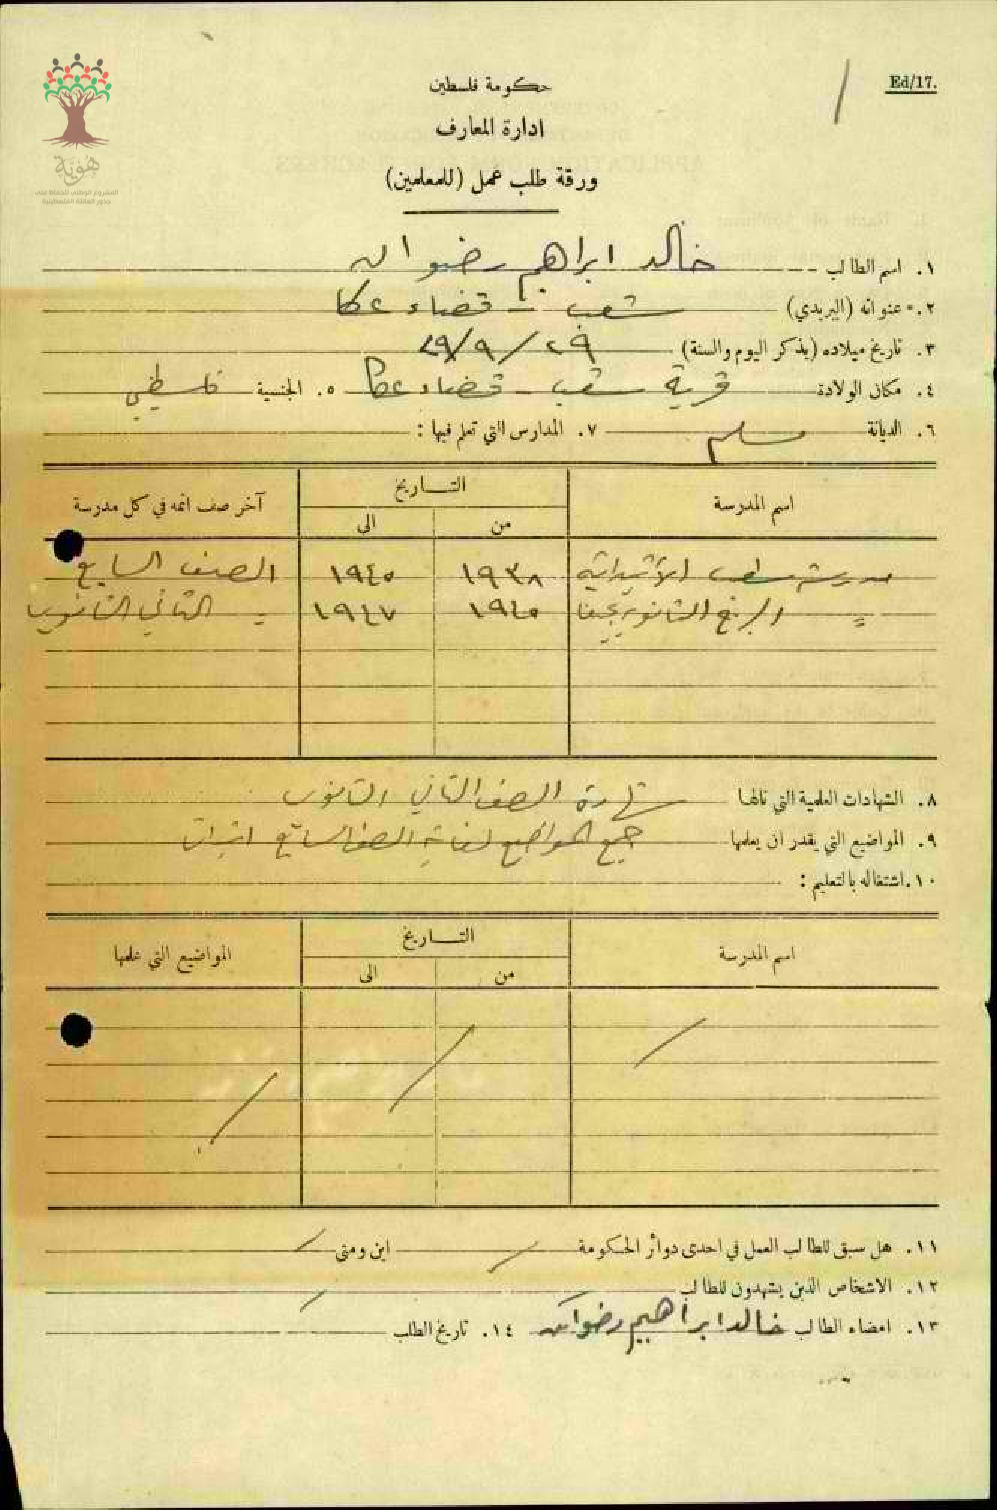 Ed/17.
حكومة فلسطين
ادارة المعارف
ورقة طلب عمل (للمعلمين)
هويّة
المشروع الوطني للحفاظ على
جذور العائلة الفلسطينية
١. اسم الطالب خالد ابراهيم رضوان
٢. عنوانه (البريدي) شعب - قضاء عكا
٣. تاريخ ميلاده (يذكر اليوم والسنة) ٢٩/٩/٢٩
٤. مكان الولادة قرية شعب - قضاء عكا ٥. الجنسية فلسطيني
٦. الديانة مسلم ٧. المدارس التي تعلم فيها :
اسم المدرسة التاريخ آخر صف اتمه في كل مدرسة
من الى
مدرسة شعب الابتدائية ١٩٣٨ ١٩٤٥ الصف السابع
= البرج الثانوية بحيفا ١٩٤٥ ١٩٤٧ = الثاني الثانوي
٨. الشهادات العلمية التي نالها شهادة الصف الثاني الثانوي
٩. المواضيع التي يقدر ان يعلمها جميع المواضيع لغاية الصف السابع ابتدائي
١٠. اشتغاله بالتعليم :
اسم المدرسة التاريخ المواضيع التي علمها
من الى
١١. هل سبق للطالب العمل في احدى دوائر الحكومة اين ومتى
١٢. الاشخاص الذين يشهدون للطالب
١٣. امضاء الطالب خالد ابراهيم رضوان ١٤. تاريخ الطلب